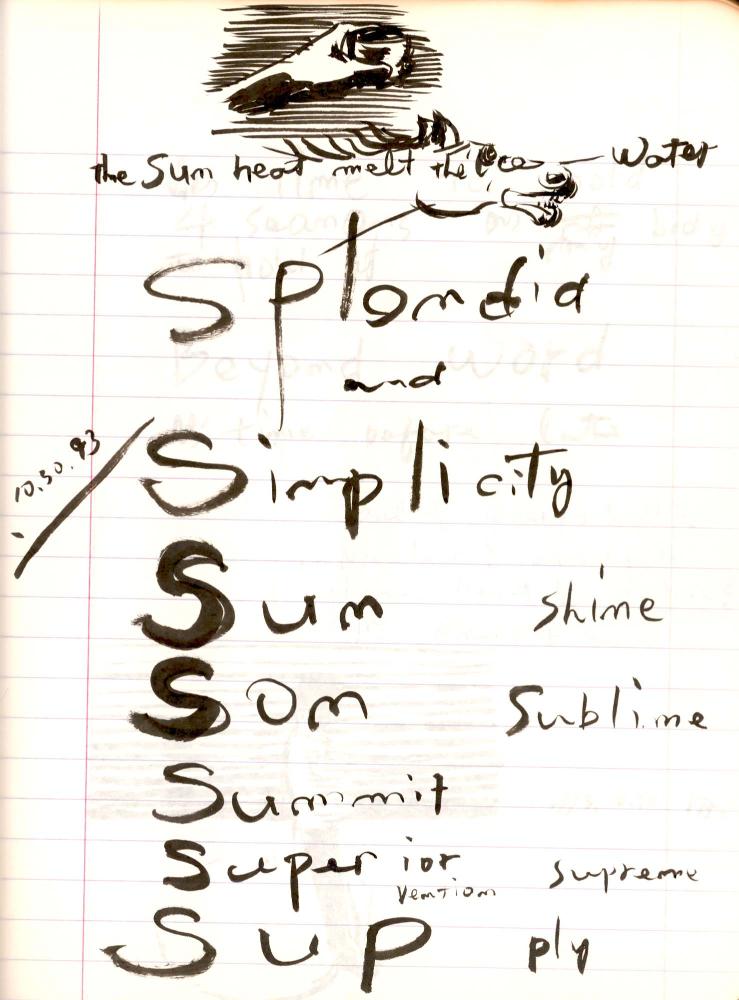 the Sun heat melt the ice — Water
Splendid
and
10.30.93
Simplicity
Sun shine
Son Sublime
Summit
Superior supreme
vention
Sup ply